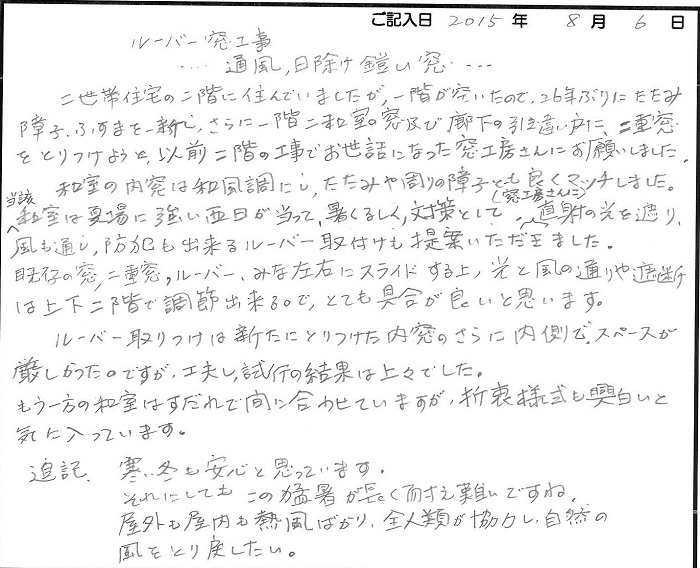 ご記入日 2015 年 8 月 6 日
ルーバー窓工事
‥‥通風,日除け鎧い窓‥‥
二世帯住宅の二階に住んでいましたが、一階が空いたので、26年ぶりにたたみ
障子、ふすまを一新し、さらに一階二和室の窓及び廊下の引き違い戸に、二重窓
をとりつけようと、以前二階の工事でお世話になった窓工房さんにお願いしました。
和室の内窓は和風調にし、たたみや周りの障子とも良くマッチしました。
当該和室は夏場に強い西日が当って、暑くるしく、対策として(窓工房さんに)、直射の光を遮り、
風も通し、防犯も出来るルーバー取付けも提案いただきました。
既存の窓,二重窓,ルーバー、みな左右にスライドする上、光と風の通りや遮断
は上下二階で調節出来るので、とても具合が良いと思います。
ルーバー取りつけは新たにとりつけた内窓のさらに内側で、スペースが
厳しかったのですが、工夫し、試行の結果は上々でした。
もう一方の和室はすだれで間に合わせていますが、折衷様式も興白いと
気に入っています。
追記、寒い冬も安心と思っています。
それにしてもこの猛暑が長く耐え難いですね。
屋外も屋内も熱風ばかり、全人類が協力し、自然の
風をとり戻したい。